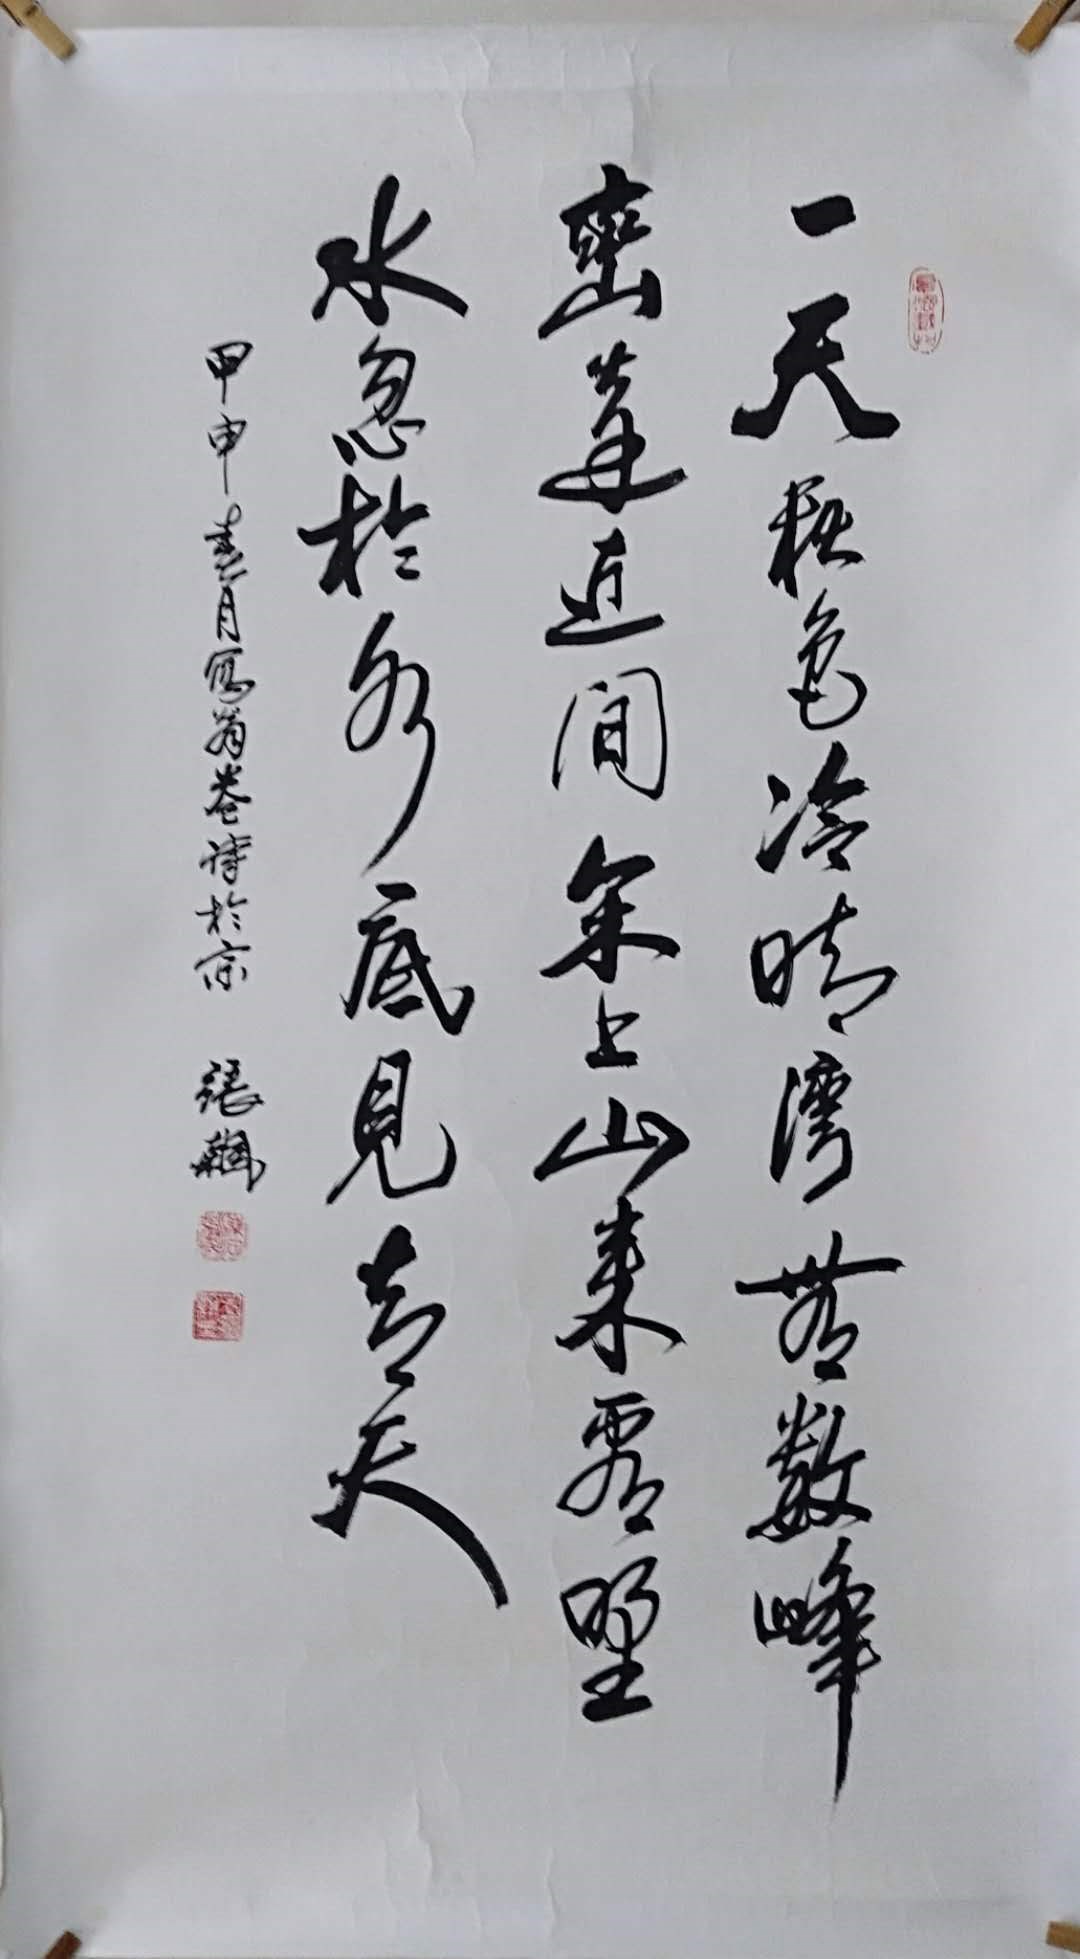 一天秋色冷晴灣無數峰
巒遠近間上山來看野
水忽於水底見青天
甲申春月寫翁卷詩於京 張飆